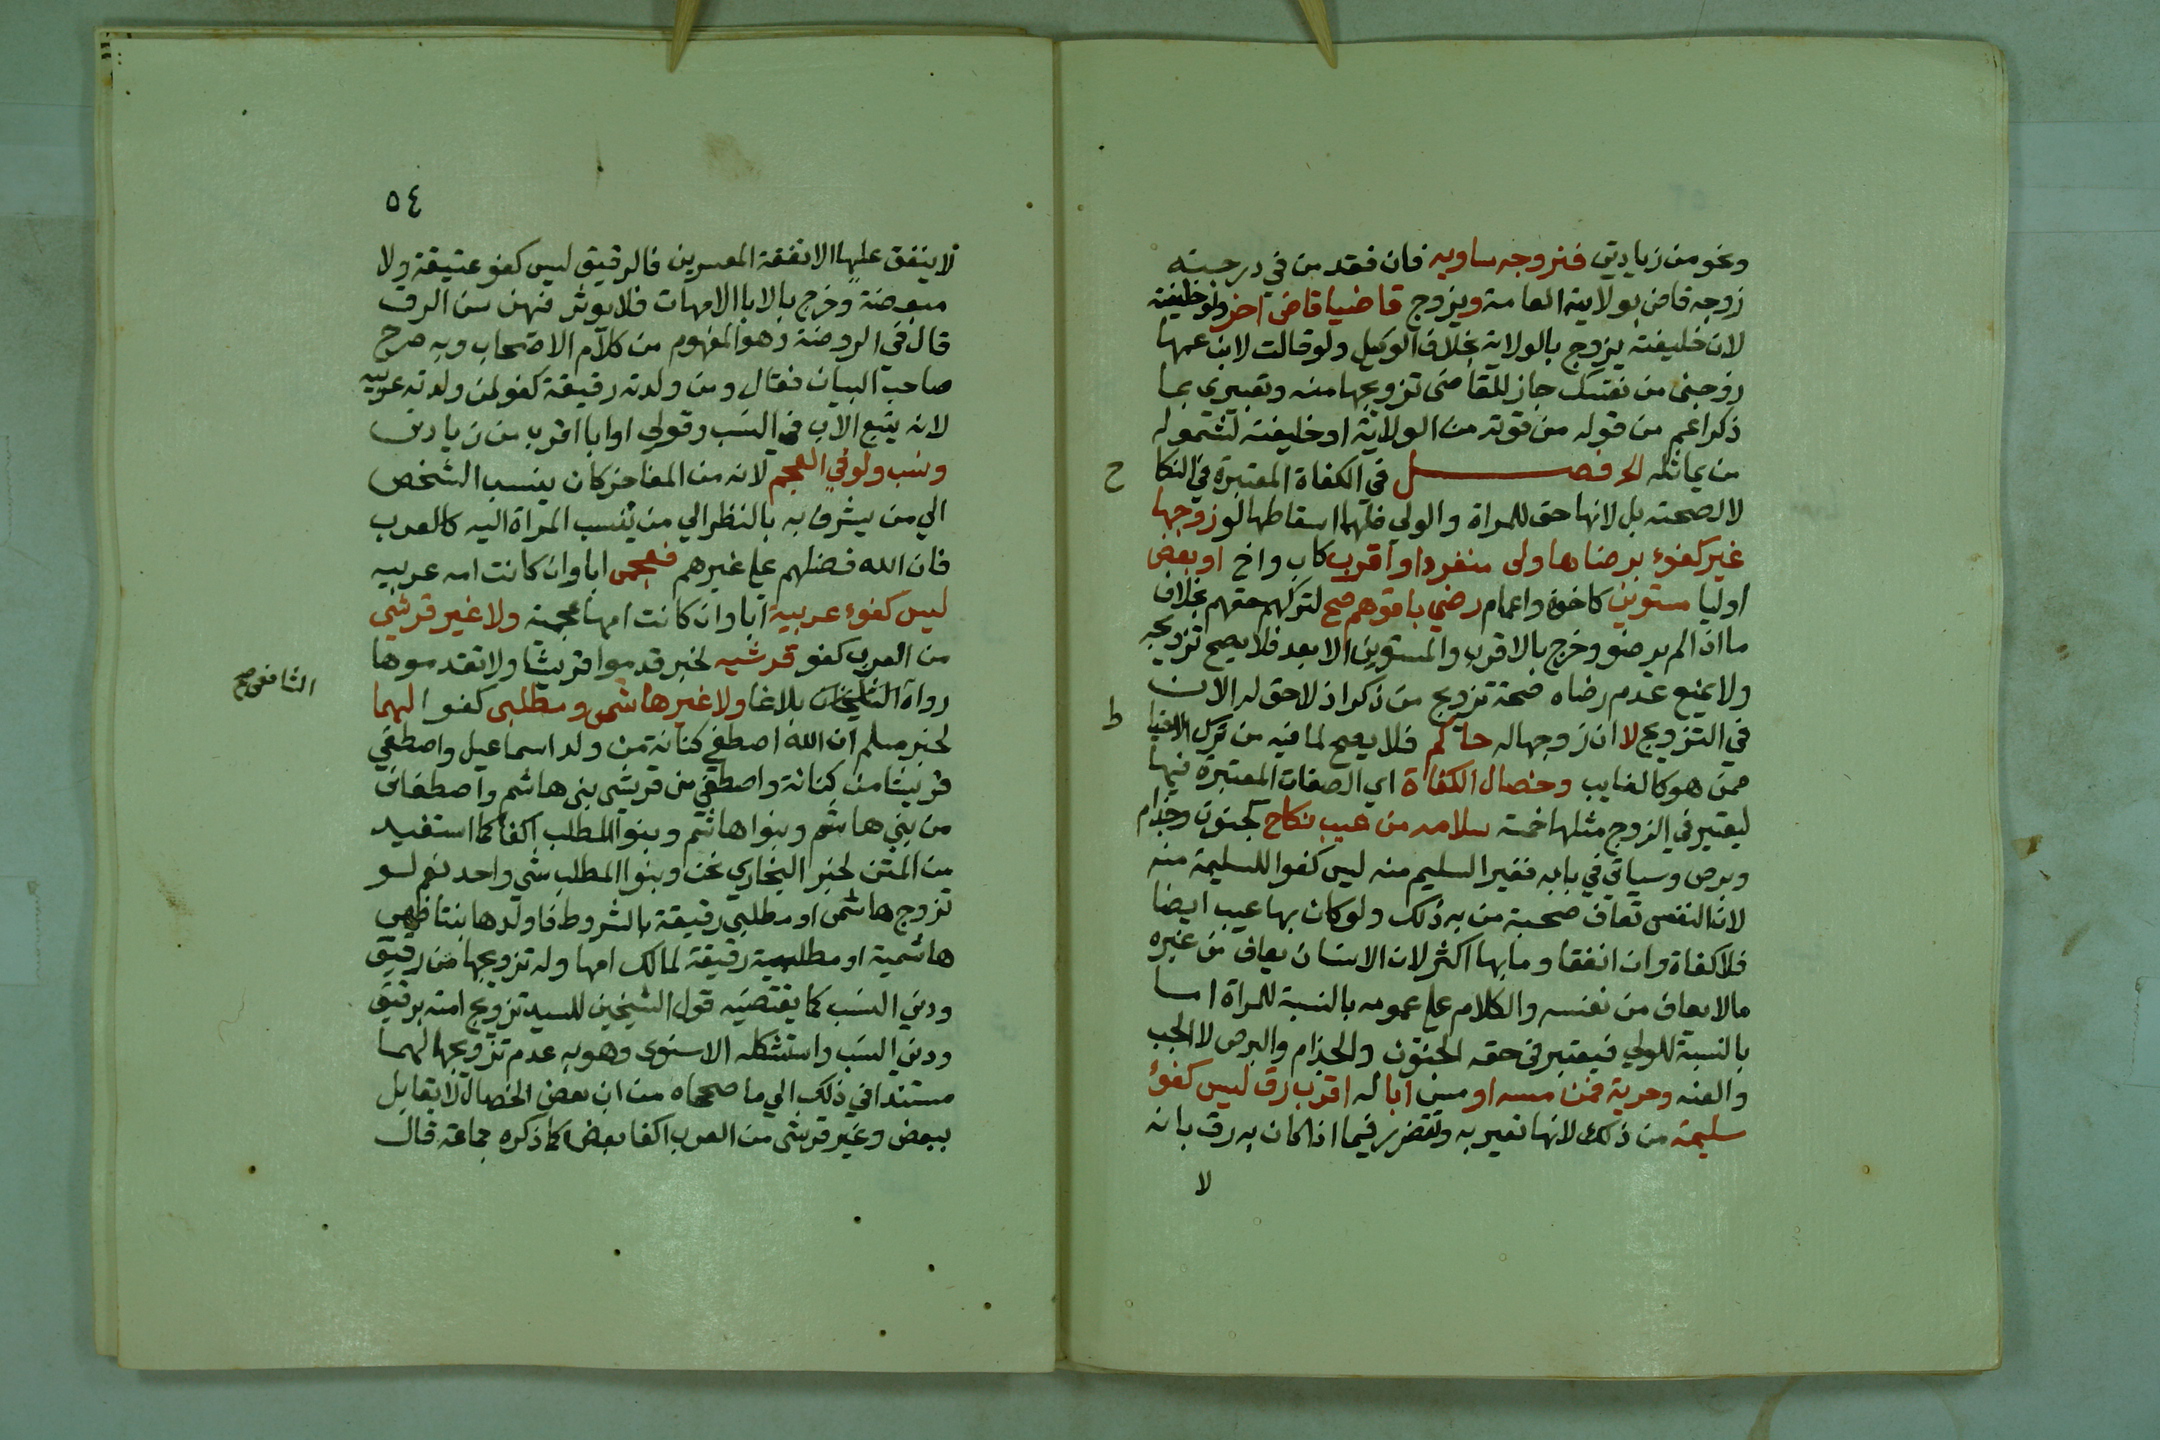 ونحو من زيادتي فنزوجه ساويه فان فقد من في درجته
زوجه قاض بولايته العامة ويزوج قاضيا قاض اخر ولو خليفته
لان خليفته يزوج بالولاية بخلاف الوكيل ولو قالت لابن عمها
زوجني من نفسك جاز للقاضي تزويجها منه وتعبيري بما
ذكر اعم من قوله من فوقه من الولاية او خليفته لشموله
من يماثله فصل في الكفاة المعتبرة في النكا
ح
لا لصحته بل لانها حق للمراة والولي فلهما اسقاطها لو زوجها
غير كفوء برضاها ولى منفرد او اقرب كاب واخ او بعض
اوليا مستوين كاخوة واعمام رضي باقوهم صح لتركهم حقهم بخلاف
ما اذا لم يرضو وخرج بالاقرب والمستوين الابعد فلا يصح تزويجه
ولا يمنع عدم رضاه صحة تزويج من ذكر اذ لاحق له الان
في التزويج لا ان زوجها له حاكم فلا يصح لما فيه من ترك الاحتيا
ط
ممن هو كالغايب وخصال الكفاة اي الصفات المعتبرة فيها
ليعتبر في الزوج مثلها خمسة سلامه من عيب نكاح كجنون وجذام
وبرص وسياتي في بابه فغير السليم منه ليس كفوا للسليمة منه
لان النفس تعاف صحبة من به ذلك ولو كان بها عيب ايضا
فلا كفاة وان اتفقا وما بها اكثر لان الانسان يعاف من غيره
مالا يعاف من نفسه والكلام على عمومه بالنسبة للمراة اما
بالنسبة للولي فيعتبر في حقه الجنون والجذام والبرص لا الجب
والعنه وحرية فمن مسه او مس ابا له اقرب رق ليس كفوء
سليمة من ذلك لانها تعير به وتتضرر فيما اذا كان به رق بانه
لا
٥٤
لا ينفق عليها الا نفقة المعسرين فالرقيق ليس كفو عتيقة ولا
مبعضة وخرج بالابا الامهات فلا يوثر فيهن مس الرق
قال في الروضة وهو المفهوم من كلام الاصحاب وبه صرح
صاحب البيان فقال ومن ولدته رقيقة كفو لمن ولدته عربيه
لانه يتبع الاب في النسب وقولي او ابا اقرب من زيادتي
ونسب ولو في العجم لانه من المفاخر كان ينسب الشخص
الي من يشرف به بالنظر الي من تنسب المراة اليه كالعرب
فان الله فضلهم علي غيرهم فعجمى ابا وان كانت امه عربيه
ليس كفوء عربية ابا وان كانت امها عجمية ولا غير قرشي
من العرب كفو قرشيه لخبر قدموا قريشا ولا تقدموها
رواه بلاغا ولا غير هاشمى ومطلبى كفوا لهما
الشافعي صح
لخبر مسلم ان الله اصطفي كنانة من ولد اسماعيل واصطفي
قريشا من كنانة واصطفي من قريش بني هاشم واصطفاني
من بني هاشم وبنوا هاشم وبنوا المطلب اكفا كما استفيد
من المتن لخبر البخاري نحن وبنوا المطلب شي واحد نعم لو
تزوج هاشمى او مطلبي رقيقة بالشروط فاولدها بنتا فهي
هاشمية او مطلبية رقيقة لمالك امها وله تزويجها من رقيق
ودني النسب كما يقتضيه قول الشيخين للسيد تزويج امته برقيق
ودني النسب واستشكله الاسنوى وهو به عدم تزويجها لهما
مستندا في ذلك الي ما صححاه من ان بعض الخصال لا يقابل
ببعض وغير قرشى من العرب اكفا بعض كما ذكره جماعة قال